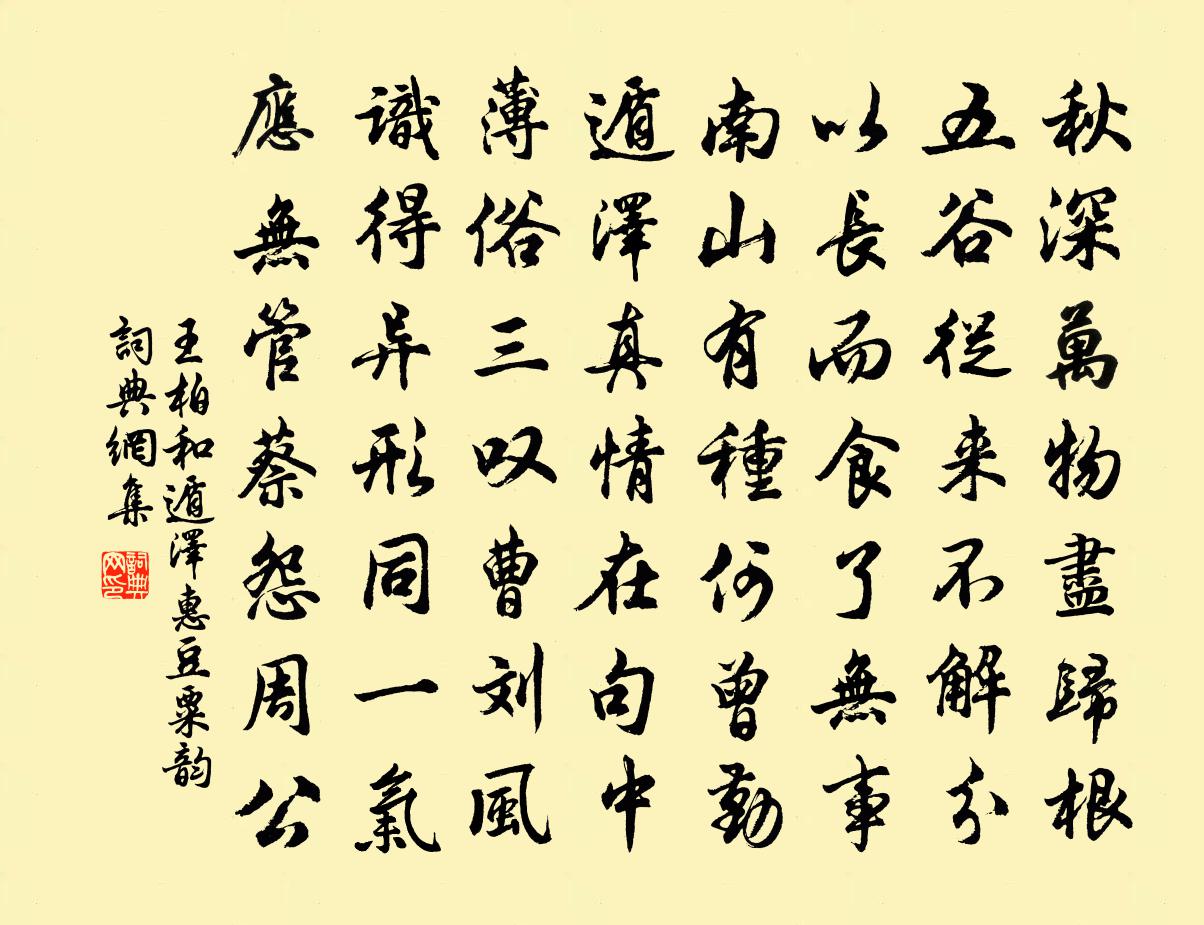 秋深萬物盡歸根
五谷從来不解分
以長而食了無事
南山有種何曾勤
遁澤真情在句中
薄俗三叹曹刘風
識得异形同一氣
應無管蔡怨周公
王柏和遁澤惠豆粟韵
詞典網集
詞典网印